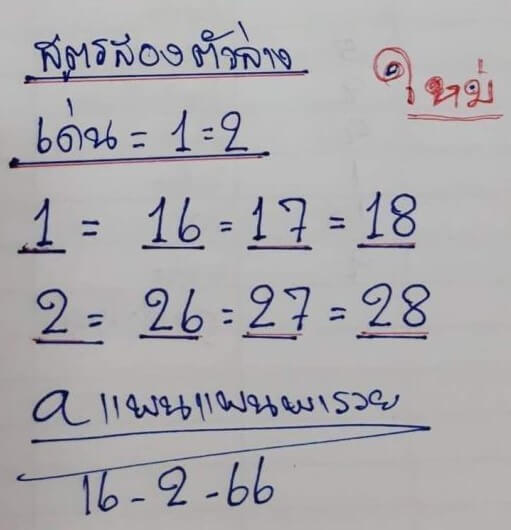 สูตรสองตัวล่าง
ใหม่
เด่น = 1 = 2
1 = 16 = 17 = 18
2 = 26 = 27 = 28
a แพนแพนพารวย
16 - 2 - 66